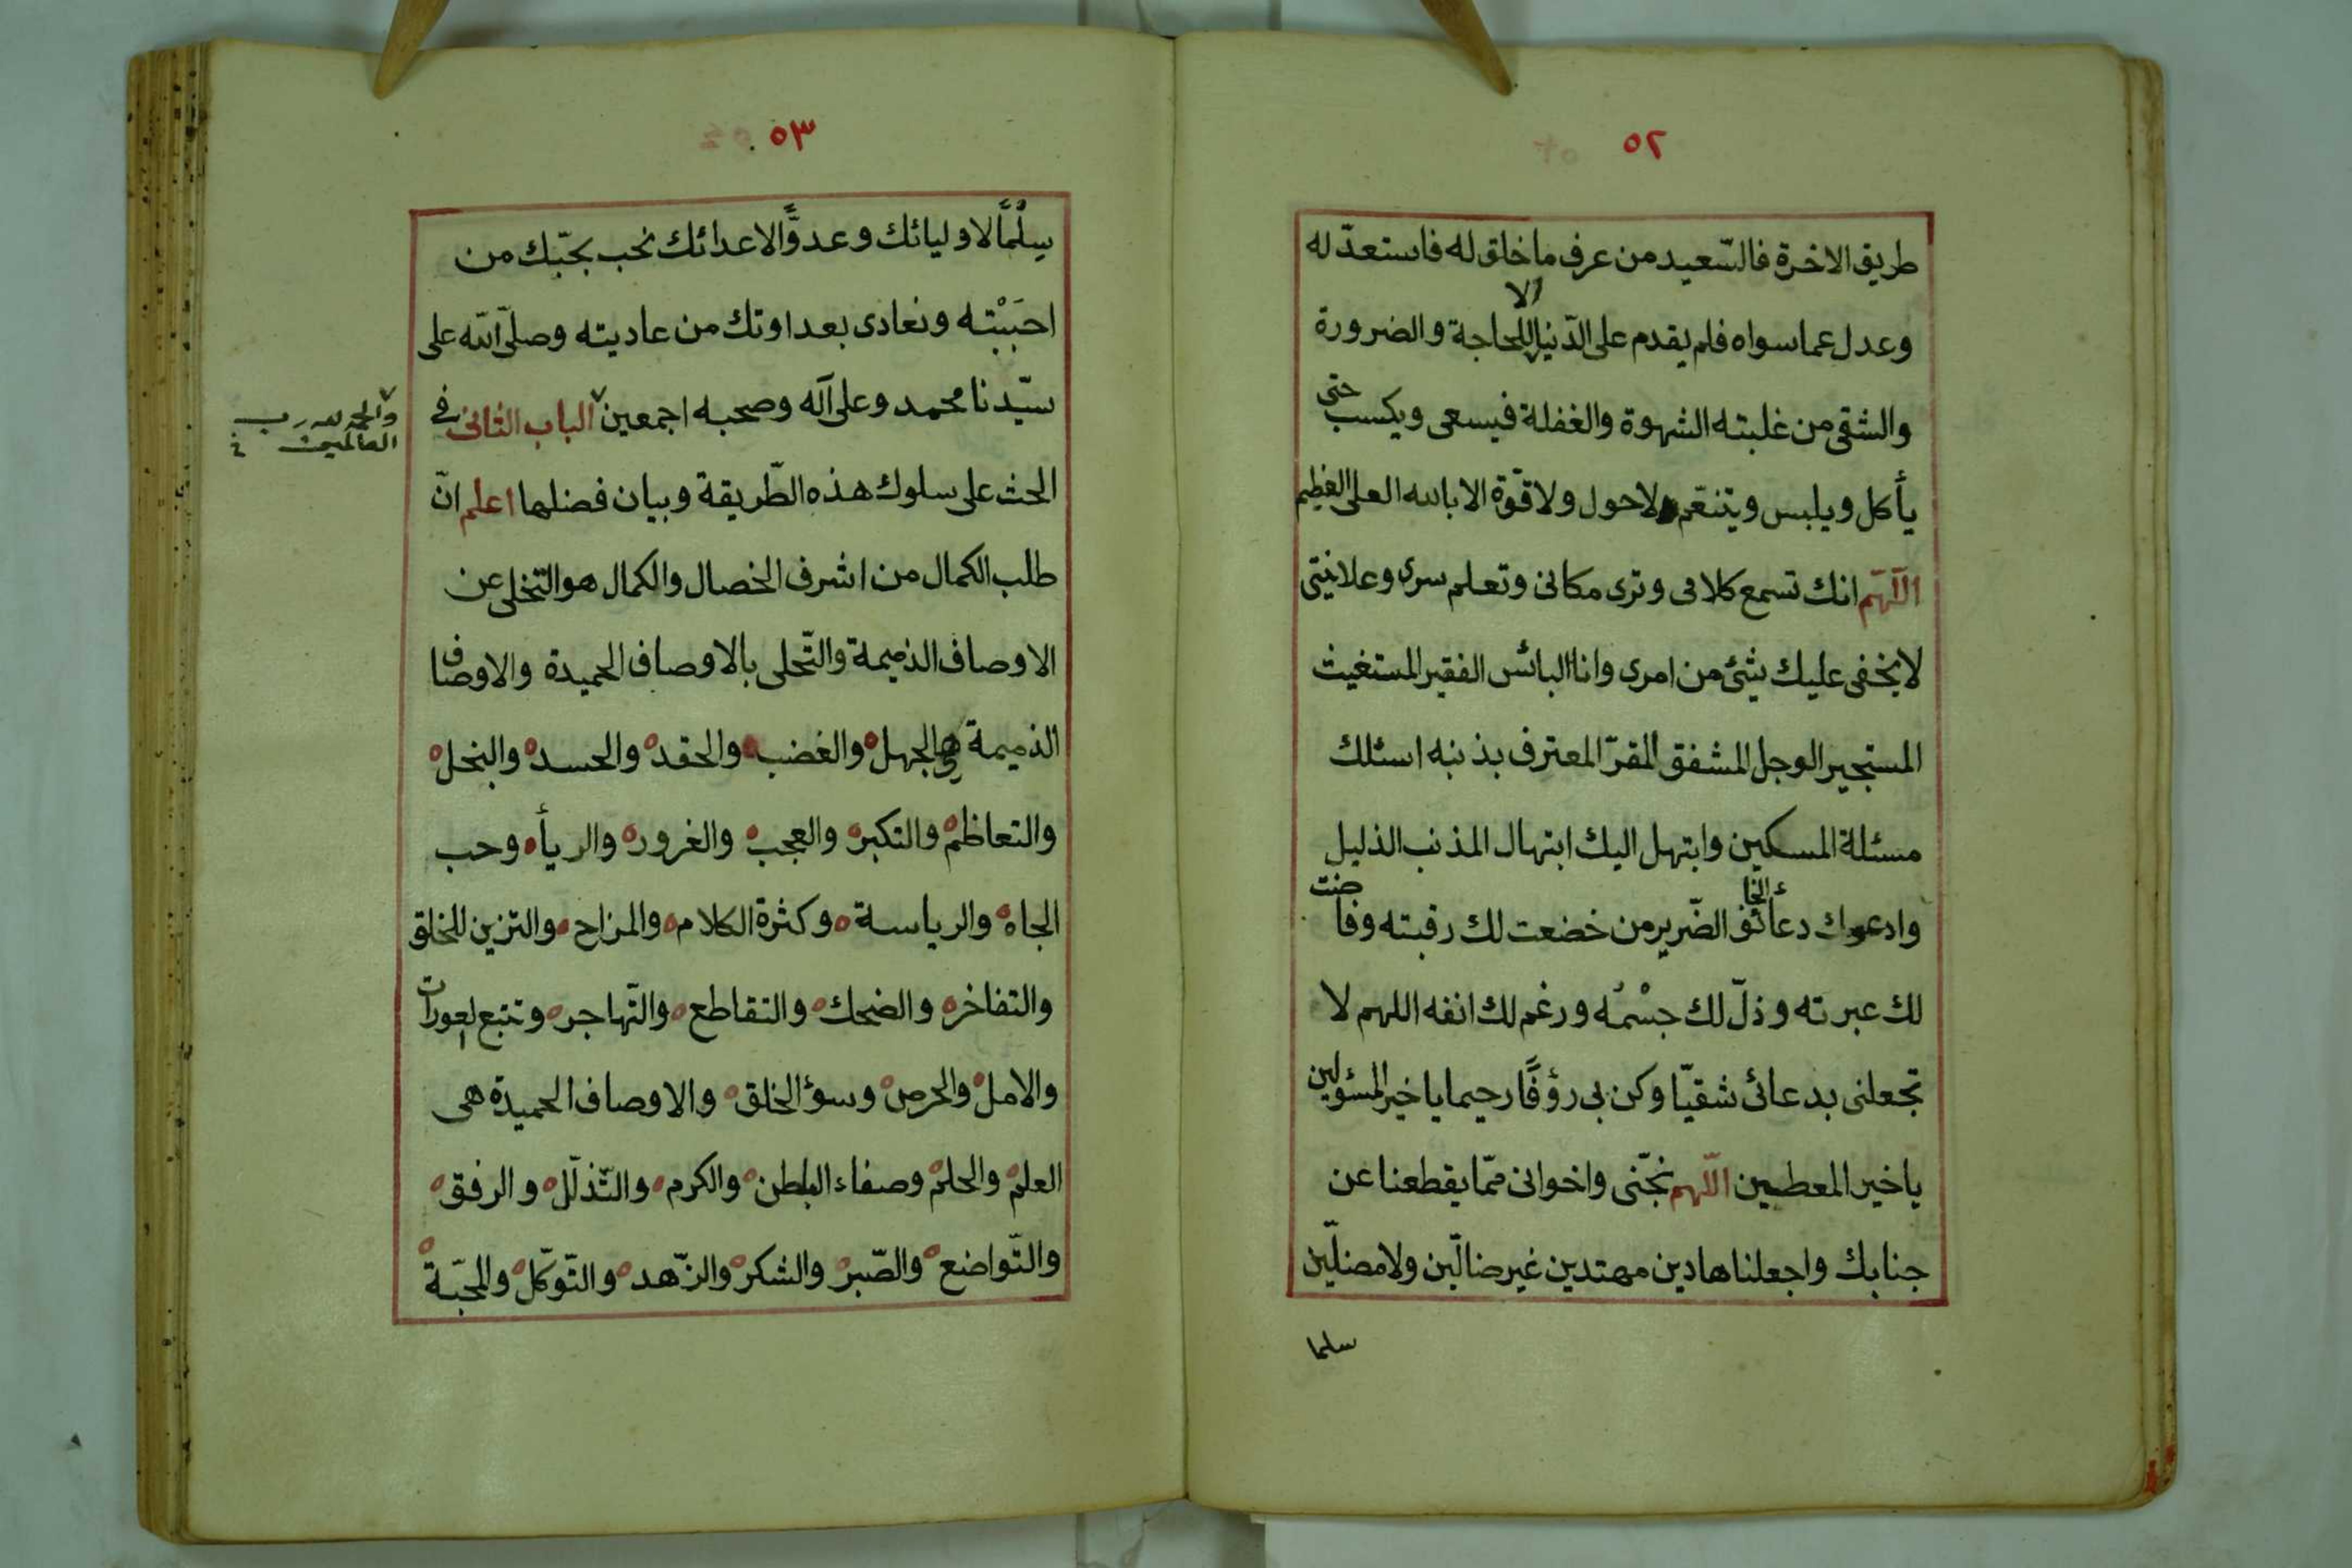 ٥٢
طريق الاخرة فالسّعيد من عرف ما خلق له فاستعدّ له
وعدل عما سواه فلم يقدم على الدّنيا الا للحاجة والضرورة
والشقى من غلبته الشهوة والغفلة فيسعى ويكسب حتى
يأكل ويلبس ويتنعّم ولاحول ولاقوّة الا بالله العلى العظيم
اللّهمّ انك تسمع كلامى وترى مكانى وتعلم سرى وعلانيتى
لايخفى عليك شئ من امرى وانا البائس الفقير المستغيث
المستجير الوجل المشفق المقرّ المعترف بذنبه اسئلك
مسئلة المسكين وابتهل اليك ابتهال المذنب الذليل
وادعوك دعاء الخائف الضّرير من خضعت لك رقبته وفاضت
لك عبرته وذلّ لك جسْمُه ورغم لك انفه اللهم لا
تجعلنى بدعائى شقيّا وكن بى رؤفًا رحيما يا خير المسئولين
يا خير المعطين اللّهم نجّنى واخوانى ممّا يقطعنا عن
جنابك واجعلنا هادين مهتدين غير ضالّين ولا مضلّين
سلما
٥٣
سِلْمًا لاوليائك وعدوًّا لاعدائك نحب بحبّك من
احبَبْته ونعادى بعداوتك من عاديته وصلّى الله على
سيّدنا محمد وعلى آله وصحبه اجمعين الباب الثانى فى
والحمد لله رب
العالمين
الحث على سلوك هذه الطّريقة وبيان فضلها اعلم انّ
طلب الكمال من اشرف الخصال والكمال هو التّخلى عن
الاوصاف الذميمة والتّحلى بالاوصاف الحميدة والاوصاف
الذميمة هى الجهل والغضب والحقد والحسد والبخل
والتعاظم والتكبر والعجب والغرور والريأ وحب
الجاه والرياسة وكثرة الكلام والمزاح والتزين للخلق
والتفاخر والضحك والتقاطع والتّهاجر وتتبع العورات
والامل والحرص وسوء الخلق والاوصاف الحميدة هى
العلم والحلم وصفاء الباطن والكرم والتّذلّل والرفق
والتّواضع والصّبر والشكر والزّهد والتّوكّل والمحبّة